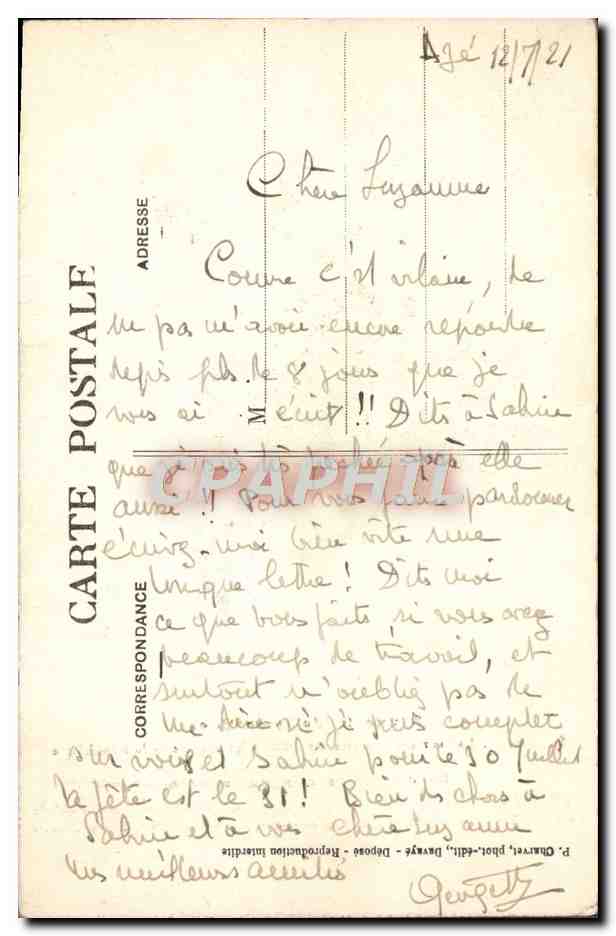 Azé 12/7/21
Chère Suzanne
Comme c'est vilain, de
ne pas m'avoir encore répondre
depuis plus de 8 jours que je
vous ai écrit !! Dits à Sabine
que je suis très fachée après elle
aussi !! Pour vous faire pardonner
écrivez-moi bien vite une
longue lettre ! Dits moi
ce que vous faits, si vous avez
beaucoup de travail, et
surtout n'oubliez pas de
me dire si je puis compter
sur vous et Sabine pour le 30 Juillet
la fête est le 31! Bien ds choses à
Sabine et à vous chère Suzanne
mes meilleurs amitiés
Georgette
CARTE POSTALE
ADRESSE
M
CORRESPONDANCE
P. Charvet, phot.-édit., Davayé - Déposé - Reproduction interdite
CPAPHIL